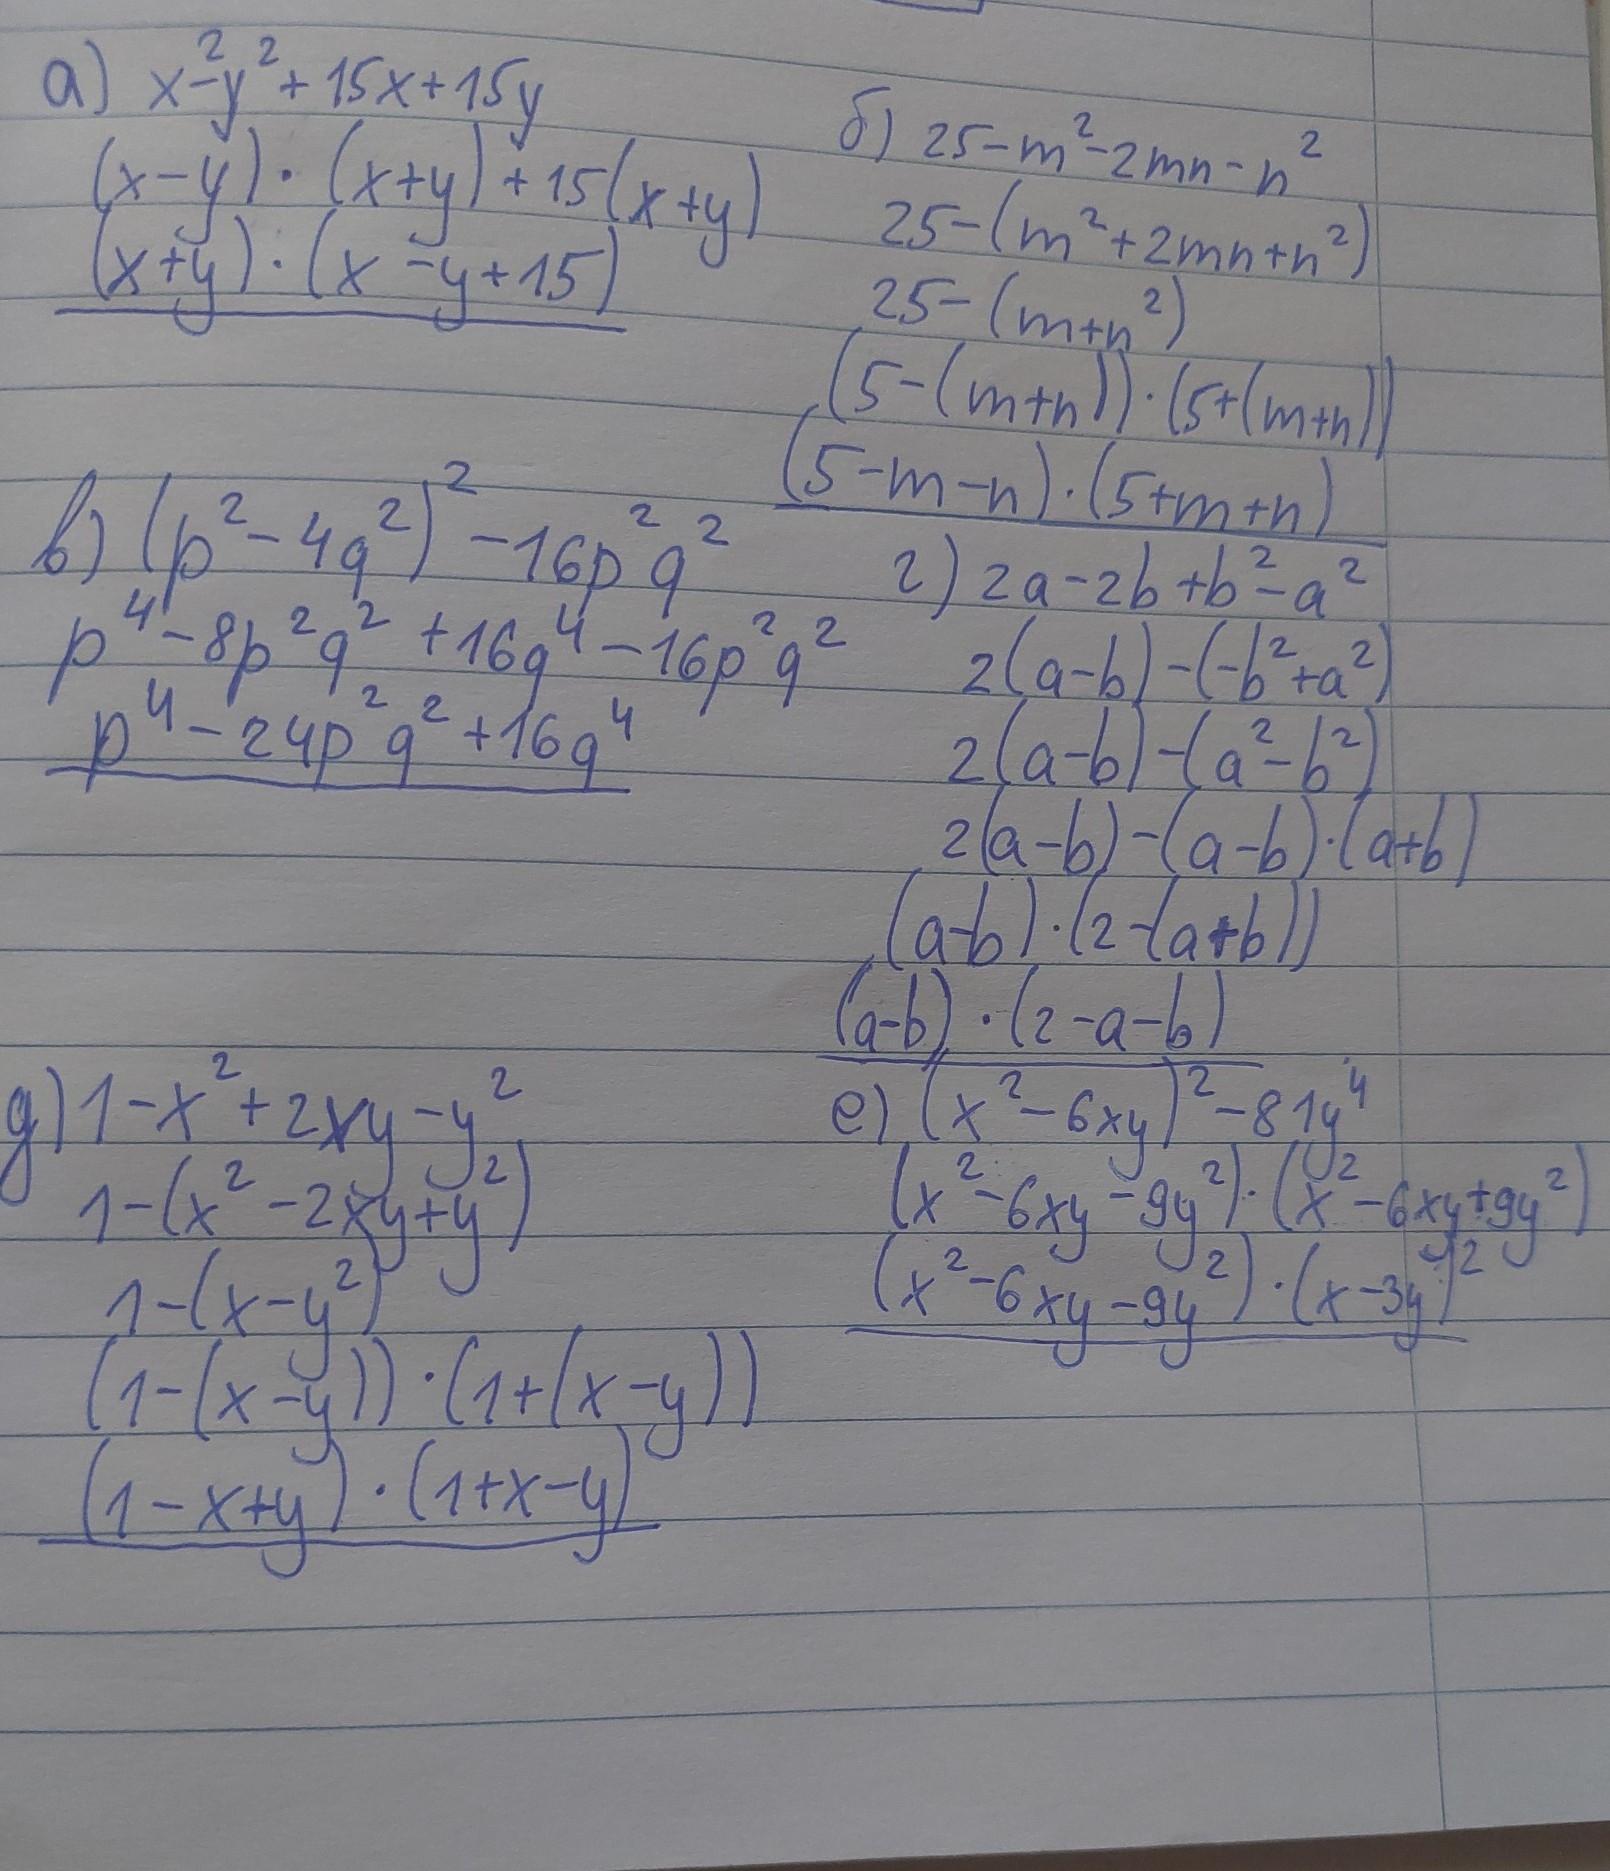 а) x²-y²+15x+15y
(x-y)·(x+y)+15(x+y)
(x+y)·(x-y+15)
б) 25-m²-2mn-n²
25-(m²+2mn+n²)
25-(m+n²)
(5-(m+n))·(5+(m+n))
(5-m-n)·(5+m+n)
в) (p²-4q²)²-16p²q²
p⁴-8p²q²+16q⁴-16p²q²
p⁴-24p²q²+16q⁴
г) 2a-2b+b²-a²
2(a-b)-(-b²+a²)
2(a-b)-(a²-b²)
2(a-b)-(a-b)·(a+b)
(a-b)·(2-(a+b))
(a-b)·(2-a-b)
д) 1-x²+2xy-y²
1-(x²-2xy+y²)
1-(x-y²)
(1-(x-y))·(1+(x-y))
(1-x+y)·(1+x-y)
е) (x²-6xy)²-81y⁴
(x²-6xy-9y²)·(x²-6xy+9y²)
(x²-6xy-9y²)·(x-3y)²